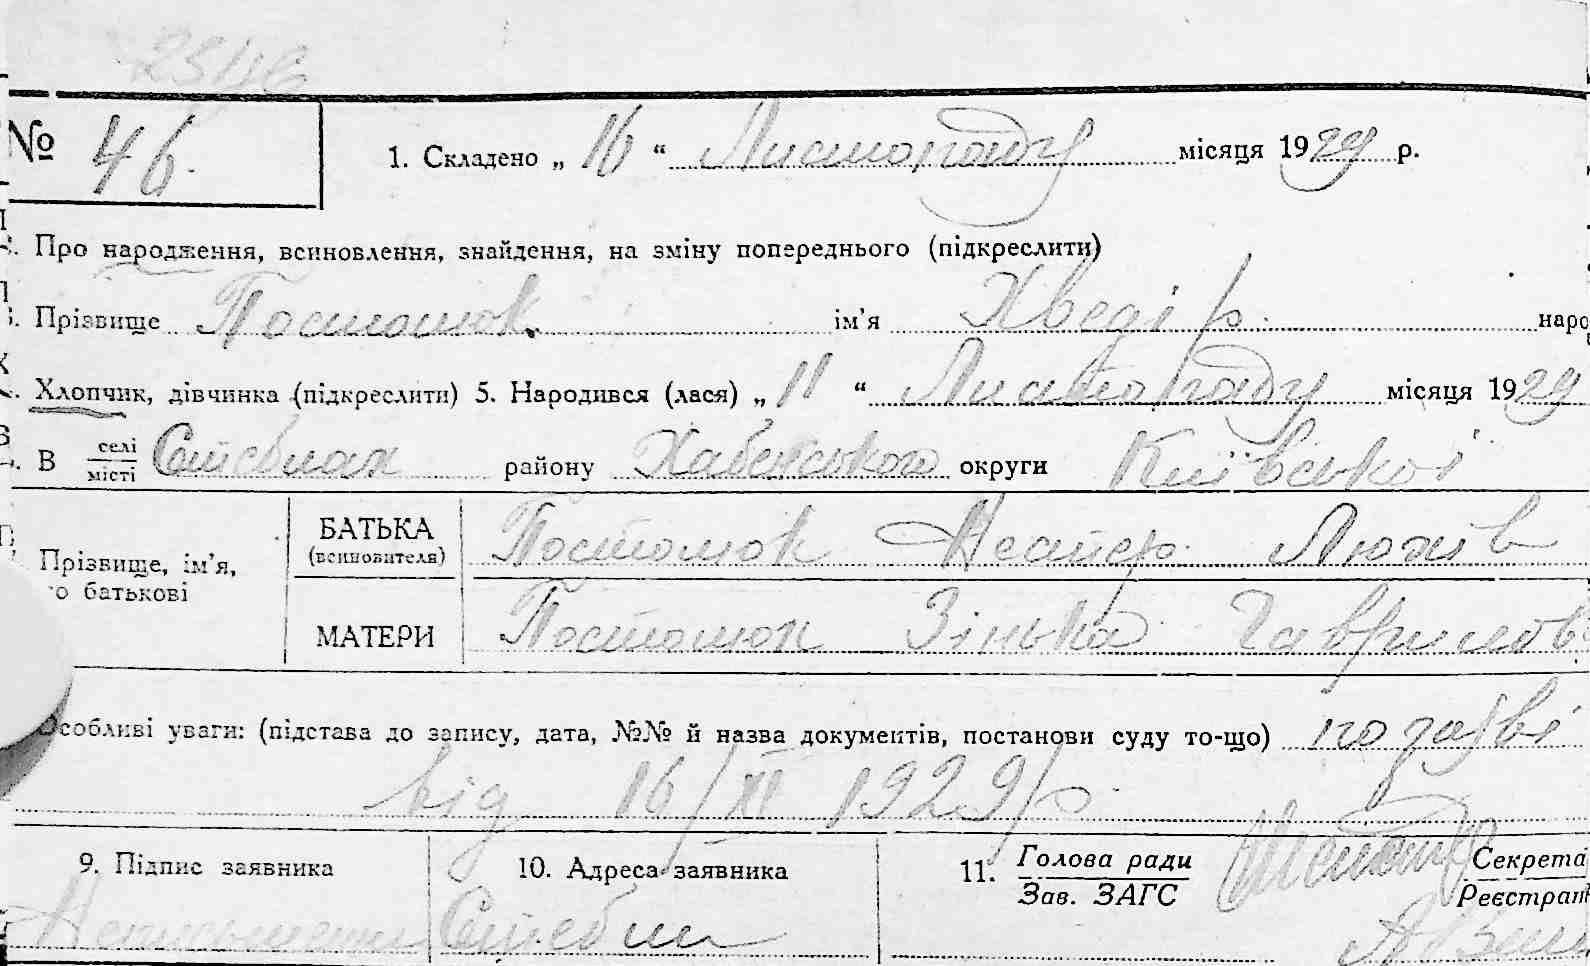 № 46. 1. Складено „ 16 “ Листопаду місяця 1929 р.
Про народження, всиновлення, знайдення, на зміну попереднього (підкреслити)
Прізвище Постолюк ім’я Хведір наро
Хлопчик, дівчинка (підкреслити) 5. Народився (лася) „ 11 “ Листопаду місяця 1929
В селі/місті Стеблах району Хабенського округи Київської
Прізвище, ім’я, по батькові
БАТЬКА (всиновителя) Постолюк Нестер
МАТЕРИ Постолюк Зінька Гаврилов
Особливі уваги: (підстава до запису, дата, №№ й назва документів, постанови суду то-що) по заяві
від 16/XI 1929 р.
9. Підпис заявника 10. Адреса заявника 11. Голова ради/Зав. ЗАГС Секрета/Реєстрат
Неписьмен Стебли